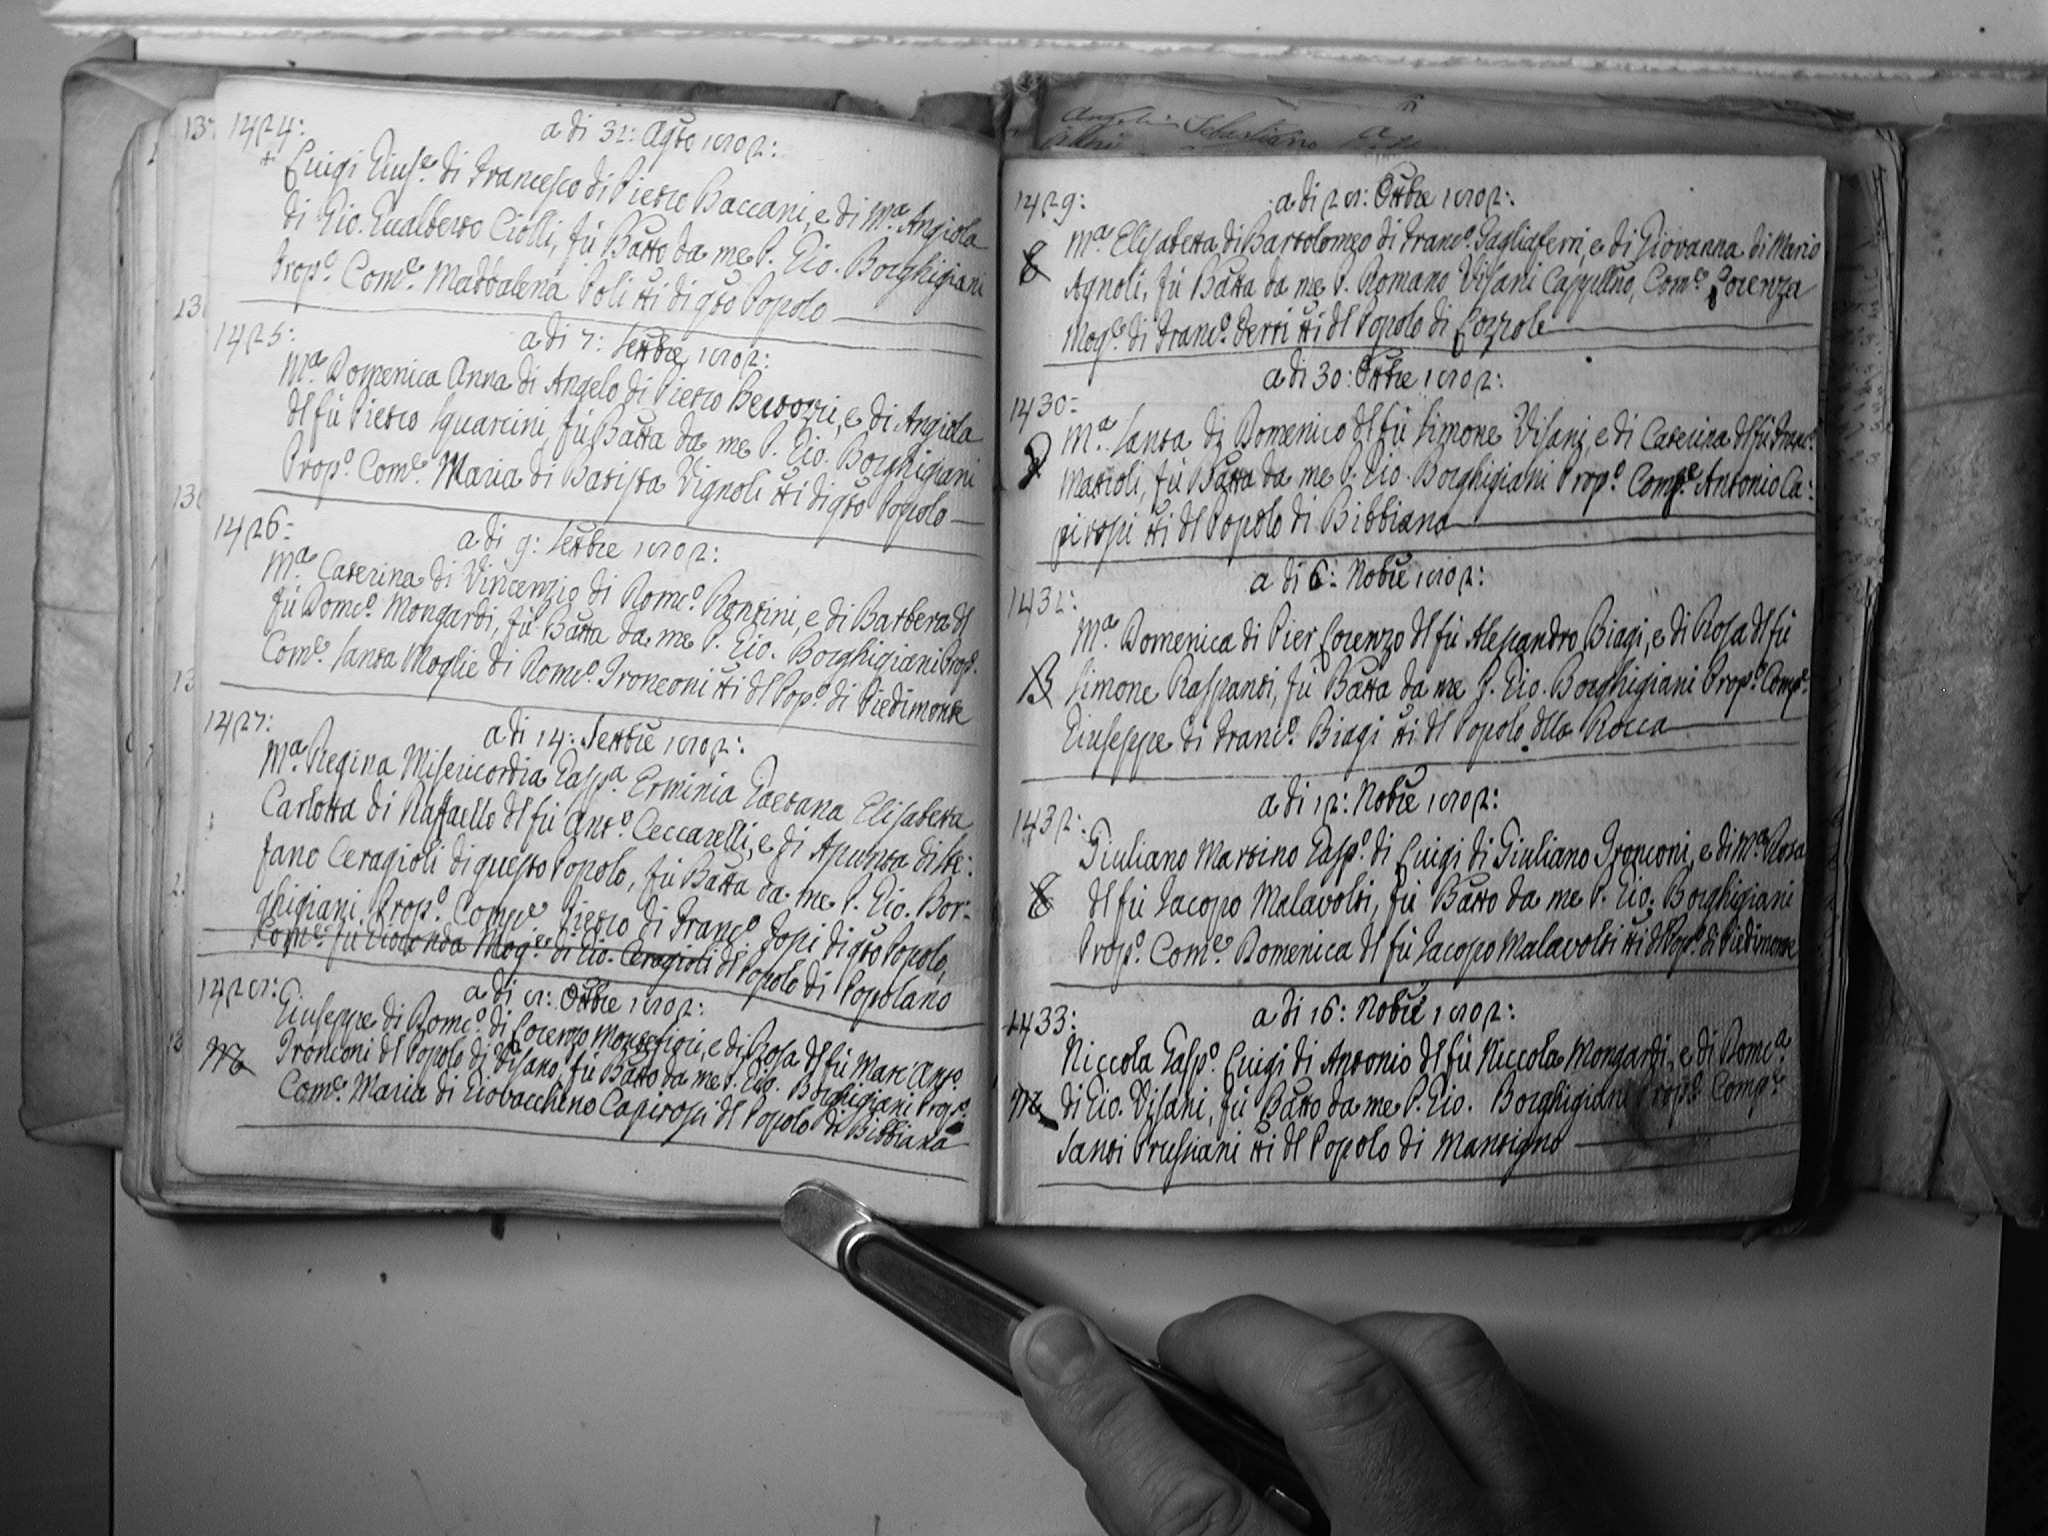 1424: a di 31: Agto 1802:
Luigi Gius.e di Francesco di Pietro Baccani, e di M.a Angiola
di Gio. Gualberto Ciolli, fù Batto da me P. Gio. Borghigiani
Prop.o Com.e Maddalena Poli tti di qto Popolo
1425: a di 7: Settbre 1802:
M.a Domenica Anna di Angelo di Pietro
dl fù Pietro Squarcini, fù Batta da me P. Gio. Borghigiani
Prop.o Com.e Maria di Batista Vignoli tti di qto Popolo
1426: a di 9: Settbre 1802:
M.a Caterina di Vincenzio di Dom.co Rontini, e di Barbera dl
fù Dom.co Mongardi, fù Batta da me P. Gio. Borghigiani Prop.o
Com.e Santa Moglie di Dom.co Tronconi tti dl Pop.o di Piedimonte
1427: a di 14: Settbre 1802:
M.a Regina Misericordia Gasp.a Erminia Gaetana Elisabetta
Carlotta di Raffaello dl fù Ant.o Ceccarelli, e di Apunta di Ste:
fano Ceragioli di questo Popolo, fù Batta da me P. Gio. Bor:
ghigiani Prop.o Comp.e Pietro di Fran.co Topi di qto Popolo,
Com.e fù Gioconda Mog.e di Gio. Ceragioli dl Popolo di Popolano
1428: a di 8: Ottbre 1802:
Giuseppe di Dom.co di Lorenzo Montefiori, e di Rosa dl fù Marc'Ant.o
Tronconi dl Popolo di Visano, fù Batto da me P. Gio. Borghigiani Prop.o
Com.e Maria di Giovacchino Capirossi dl Popolo di Bibbiana
1429: a di 28: Ottbre 1802:
M.a Elisabetta di Bartolomeo di Fran.co Tagliaferri, e di Giovanna di Mario
Agnoli, fù Batta da me P. Romano Visani Cappllno, Com.e Lorenza
Mog.e di Fran.co Ferri tti dl Popolo di Lozzole
a di 30: Ottbre 1802:
1430:
M.a Santa di Domenico dl fù Simone Visani, e di Caterina dl fù Fran.co
Matioli, fù Batta da me P. Gio. Borghigiani Prop.o Comp.e Antonio Ca:
pirossi tti dl Popolo di Bibbiana
a di 6: Nobre 1802:
1431:
M.a Domenica di Pier Lorenzo dl fù Alessandro Biagi, e di Rosa dl fù
B Simone Raspanti, fù Batta da me P. Gio. Borghigiani Prop.o Comp.e
Giuseppe di Fran.co Biagi tti dl Popolo dlla Rocca
a di 12: Nobre 1802:
1432:
Giuliano Martino Gasp.o di Luigi di Giuliano Tronconi, e di M.a Rosa
dl fù Jacopo Malavolti, fù Batto da me P. Gio. Borghigiani
Prop.o Com.e Domenica dl fù Jacopo Malavolti tti dl Pop.o di Piedimonte
1433: a di 16: Nobre 1802:
Niccola Gasp.o Luigi di Antonio dl fù Niccola Mongardi, e di Dom.ca
di Gio. Visani, fù Batto da me P. Gio. Borghigiani Prop.o Comp.e
Santi Prussiani tti dl Popolo di Mantigno